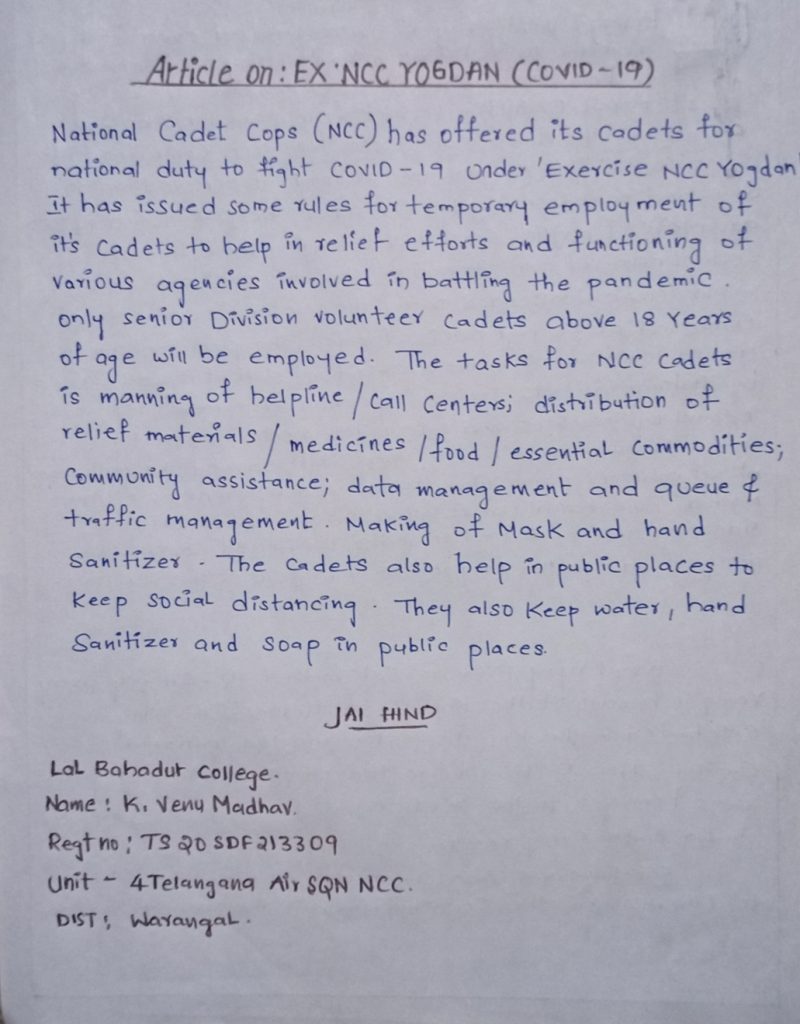 Article on: EX'NCC YOGDAN (COVID-19)
National Cadet Cops (NCC) has offered its cadets for
national duty to fight COVID-19 Under 'Exercise NCC Yogdan'
It has issued some rules for temporary employment of
it's Cadets to help in relief efforts and functioning of
various agencies involved in battling the pandemic.
only senior Division volunteer Cadets above 18 Years
of age will be employed. The tasks for NCC Cadets
is manning of helpline / Call Centers; distribution of
relief materials / medicines / food / essential Commodities;
Community assistance; data management and queue &
traffic management. Making of Mask and hand
Sanitizer. The Cadets also help in public places to
Keep social distancing. They also Keep water, hand
Sanitizer and Soap in public places.
JAI HIND
Lal Bahadur College.
Name: K. Venu Madhav.
Regt no: TS 20 SDF213309
Unit - 4 Telangana Air SQN NCC.
DIST: Warangal.